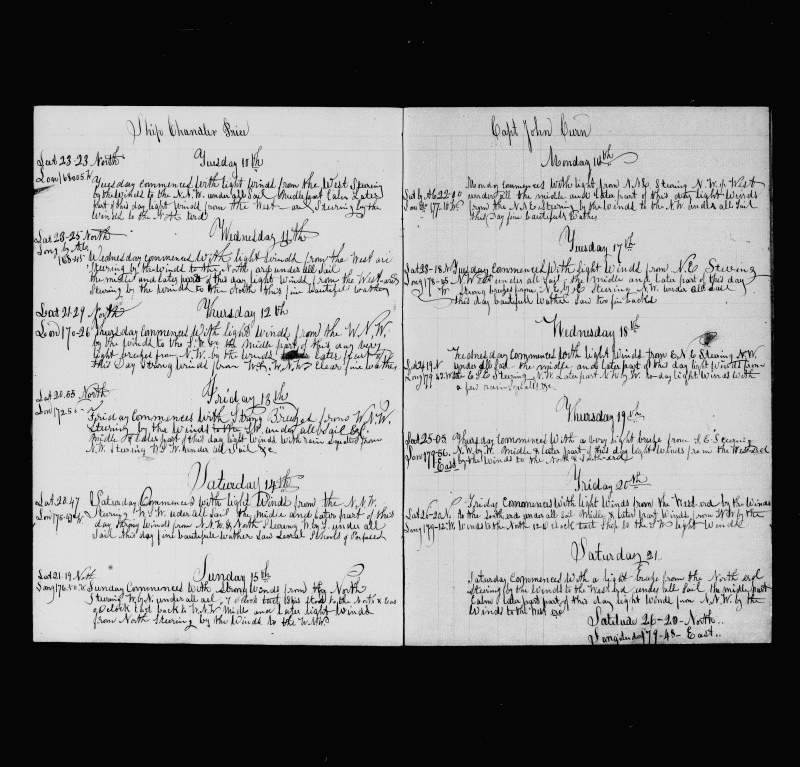 Ship Chandler Price
Lat 23-23 North
Tuesday 10th
Tuesday commences with light winds from the West Steering
by the winds to the N.N.W. under all Sail Middle part Calm Later
part of this day light Winds from the West and Steering by the
winds to the
Lat 23-25 North
Wednesday 11th
Long by
Wednesday commences with light winds from the West and
Steering by the winds to the North and under all Sail
the middle and later part of this day light Winds from the West and
Steering by the winds to the North this fine beautiful weather
Lat 21-29 North
Thursday 12th
Lon 170-26
Thursday commences with light winds from the W.N.W.
by the winds to the S.W. the Middle part of this day very
light breezes from N.W. by the winds later part
this Day Strong winds from W.N.W. clear fine weather
Lat 20.55 North
Friday 13th
Lon 172
Friday commences with Strong Breezes from W.N.W.
Steering by the winds to the S.W. under all Sail &c
Middle & Later part of this day light winds with rain squalls from
N.W. Steering W.S.W. under all Sail &c
Saturday 14th
Lat 20.47
Saturday Commences with light Winds from the N.N.W.
Steering W.S.W. under all Sail the midle and Later part of this
day strong winds from N.N.W. & North Steering W by S. under all
Sail this day fine beautiful weather Saw Several Schools of Porpoise
Sunday 15th
Lat 21.19 North
Long 176
Sunday Commences with Strong Winds from the North
Steering W by N. under all Sail 7 o'clock tact Ship Stood to the North &
9 o'clock tact back to W.N.W. Midle and Later light Winds
from North Steering by the Winds to the W.N.W.
Capt John
Monday 16th
Lat by
Monday commences with light from N.N.E. Steering N.W. & West
under all Sail the middle and later part of this day light Winds
from the N.N.E. Steering by the winds to the N.W. under all Sail
this Day fine beautiful Wather
Tuesday 17th
Lat 23-18 N
Tuesday commences With light Winds from N.E. Steering
Long 178-
N.W. under all Sail, the Middle and Later part of this day
strong breezes from N.E. to E Steering N.W. under all Sail
this day beautiful wather saw two fin backs
Wednesday 18th
Wednesday commences with light Winds from E.N.E. Steering N.W.
under all Sail the middle, and Later part of this day light Winds from
E.S.E. Steering N.W. Later part N.W by W. to-day light Winds with
a few rain squalls &c.
Thursday 19th
Lat 25-03
Thursday Commences with a very light breeze from S.E. Steering
Lon 179-56
N.W. by W. Middle & later part of this day light Winds from the Westerd
East
by the winds to the North & Southerd
Friday 20th
Lat 26-20 N.
Friday Commences with light Winds from the West-erd by the Winds
to the Southerd under all Sail Middle & later part Winds from W.W. by the
Long 179-12 W.
Winds to the North 12 o'clock tact Ship to the S.W. light Winds
Saturday 21
Saturday commences with a light breeze from the North erd
Steering by the winds to the Westerd under all Sail the middle part
Calm later part part of this day light winds from N.N.W. by the
Winds to the West &c
Latitude 26-20-North..
Longitude 179-48- East..